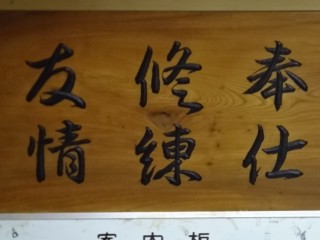 奉仕
修練
友情
案内板